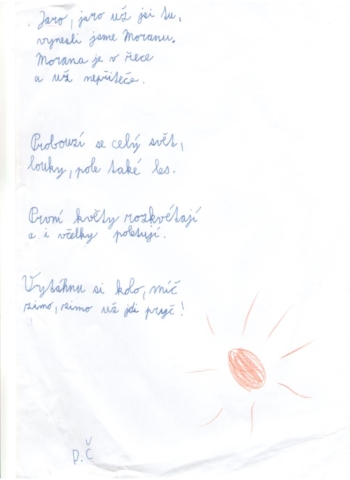 Jaro, jaro už jsi tu,
vynesli jsme Moranu.
Morana je v řece
a už nepřiteče.
Probouzí se celý svět,
louky, pole také les.
První květy rozkvétají
a i včelky poletují.
Vytáhnu si kolo, míč
zimo, zimo už jdi pryč!
D.Č